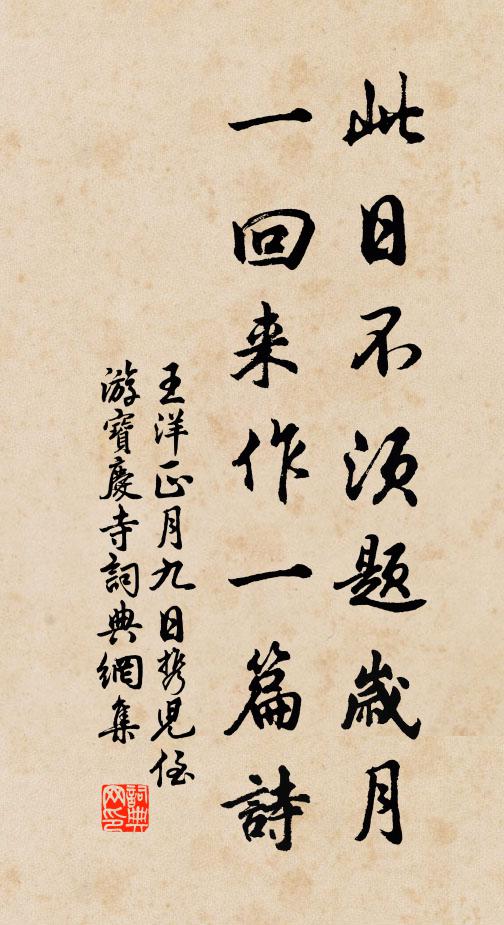 此日不須題歲月
一回来作一篇詩
王洋正月九日携兒侄
游寶慶寺詞典網集
詞典网印